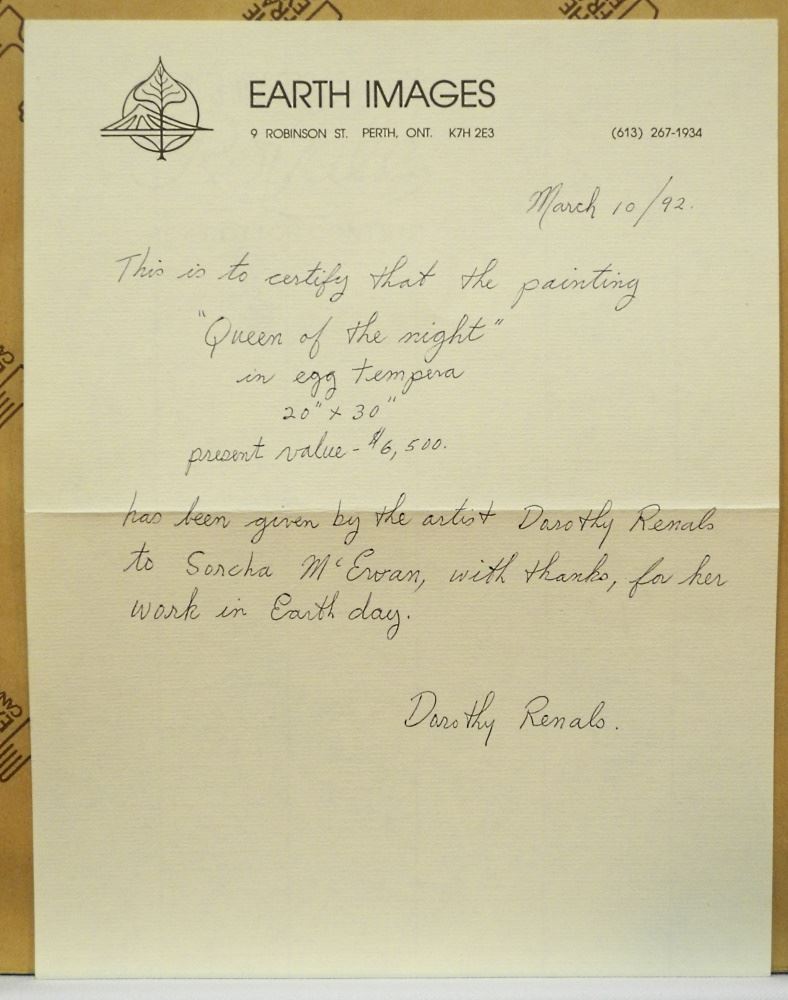 EARTH IMAGES
9 ROBINSON ST. PERTH, ONT. K7H 2E3 (613) 267-1934
March 10/92.
This is to certify that the painting
"Queen of the night"
in egg tempera
20" x 30"
present value - $6,500.
has been given by the artist Dorothy Renals
to Sorcha McEwan, with thanks, for her
work in Earth day.
Dorothy Renals.